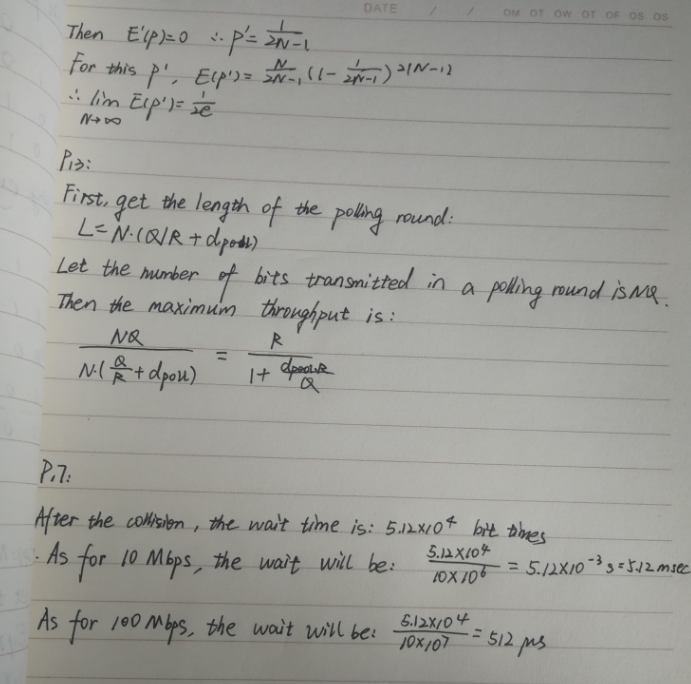 DATE / /
Then E'(p)=0 ∴ p'= 1/(2N-1)
For this p', E(p')= N/(2N-1) (1- 1/(2N-1))^2(N-1)
∴ lim N→∞ E(p')= 1/2e
P13:
First, get the length of the polling round:
L=N·(Q/R + dpoll)
Let the number of bits transmitted in a polling round is NQ.
Then the maximum throughput is:
NQ / N·(Q/R + dpoll) = R / 1+ dpoll·R/Q
P17:
After the collision, the wait time is: 5.12×10^4 bit times
∴ As for 10 Mbps, the wait will be: 5.12×10^4 / 10×10^6 = 5.12×10^-3 s=5.12 msec
As for 100 Mbps, the wait will be: 5.12×10^4 / 10×10^7 = 512 μs